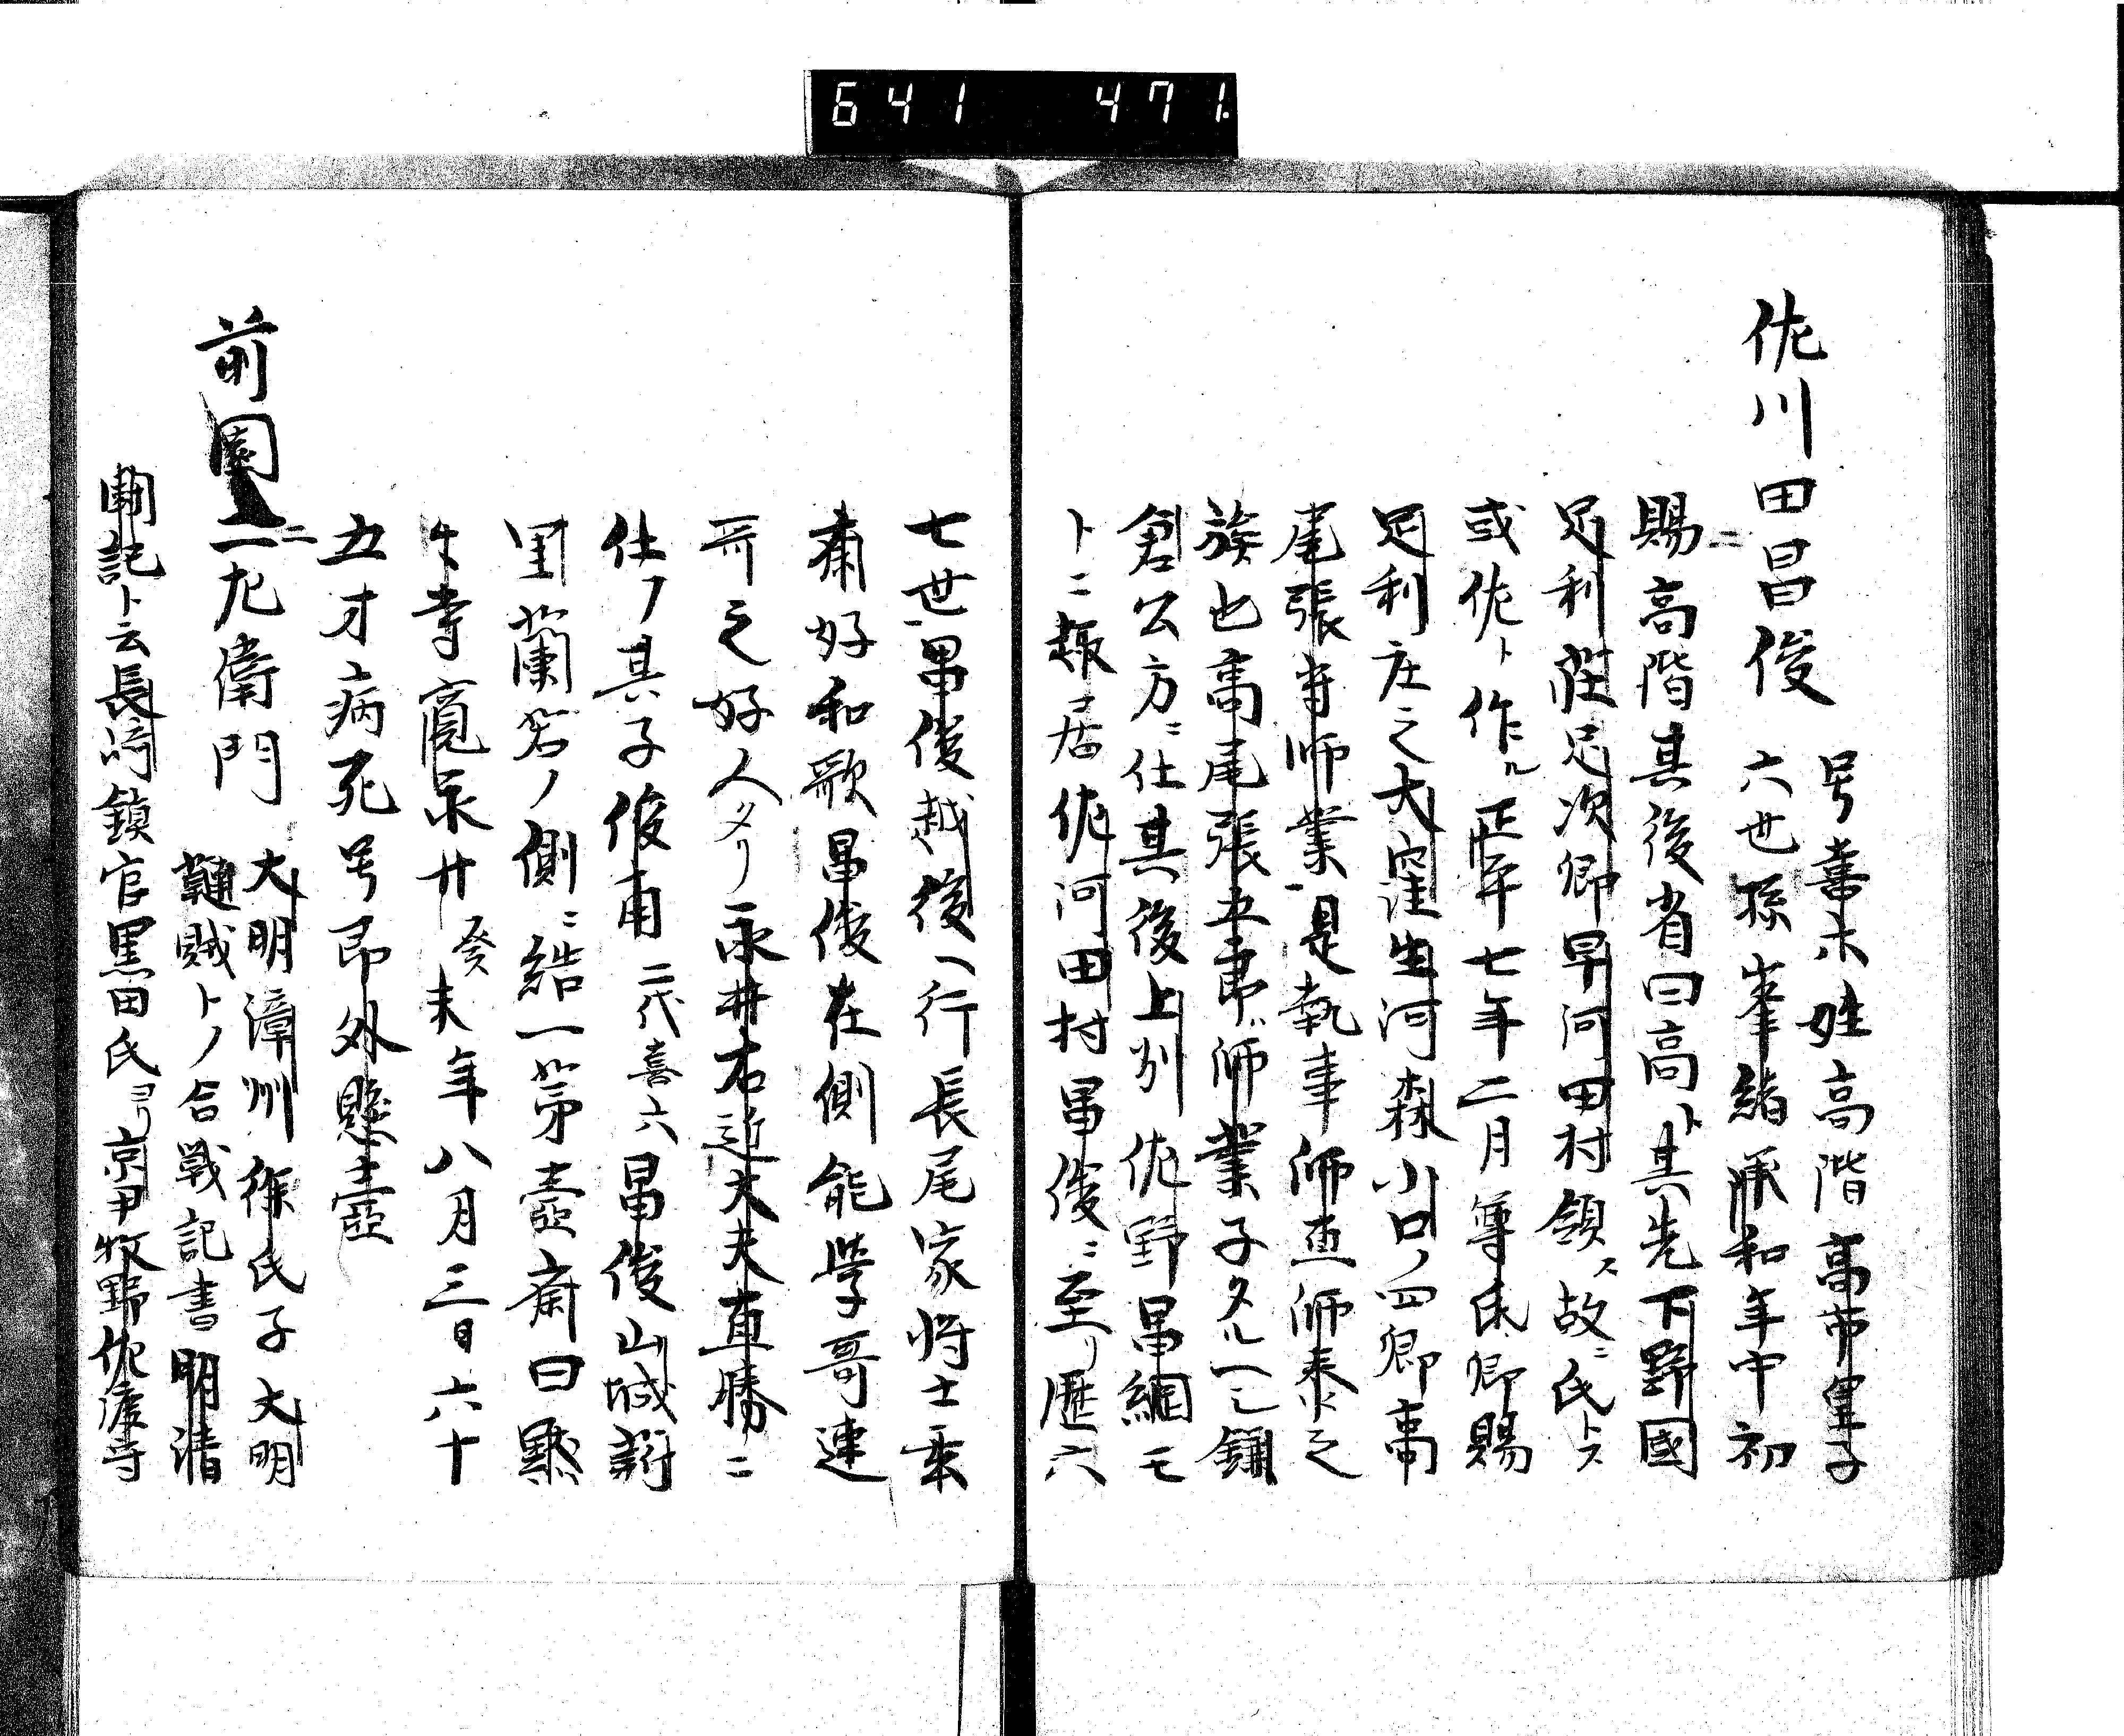 641 471.
佐川田昌俊 号喜六姓高階高市皇子
六世孫峯緒承和年中初
賜高階其後省曰高ト其先下野國
足利荘足次郷早河田村領ス故ニ氏トス
或佐ト作ル正平七年二月尊氏卿賜
足利庄之大窪生河森小口ノ四郷高
尾張守師業是執事師直師泰之
族也高尾張五郎師業子タル一之鎌
倉公方ニ仕其後上州佐野昌綱モ
トニ蟄居佐河田村昌俊ニ至リ歴六
七世昌俊越後ヘ行長尾家将士
斎好和歌昌俊在側能學哥連
哥之好人タリ永井右近大夫直勝ニ
仕フ其子俊甫二代喜六昌俊山城
里蘭若ノ側ニ結一茅壺斎曰黙
々寺寛永廿癸未年八月三日六十
五才病死号即外懸壺
前園二九衛門 大明漳州徐氏子大明
韃賊トノ合戦記書明清
闘記ト云長崎鎮官黒田氏ヨリ京尹牧野佐渡守